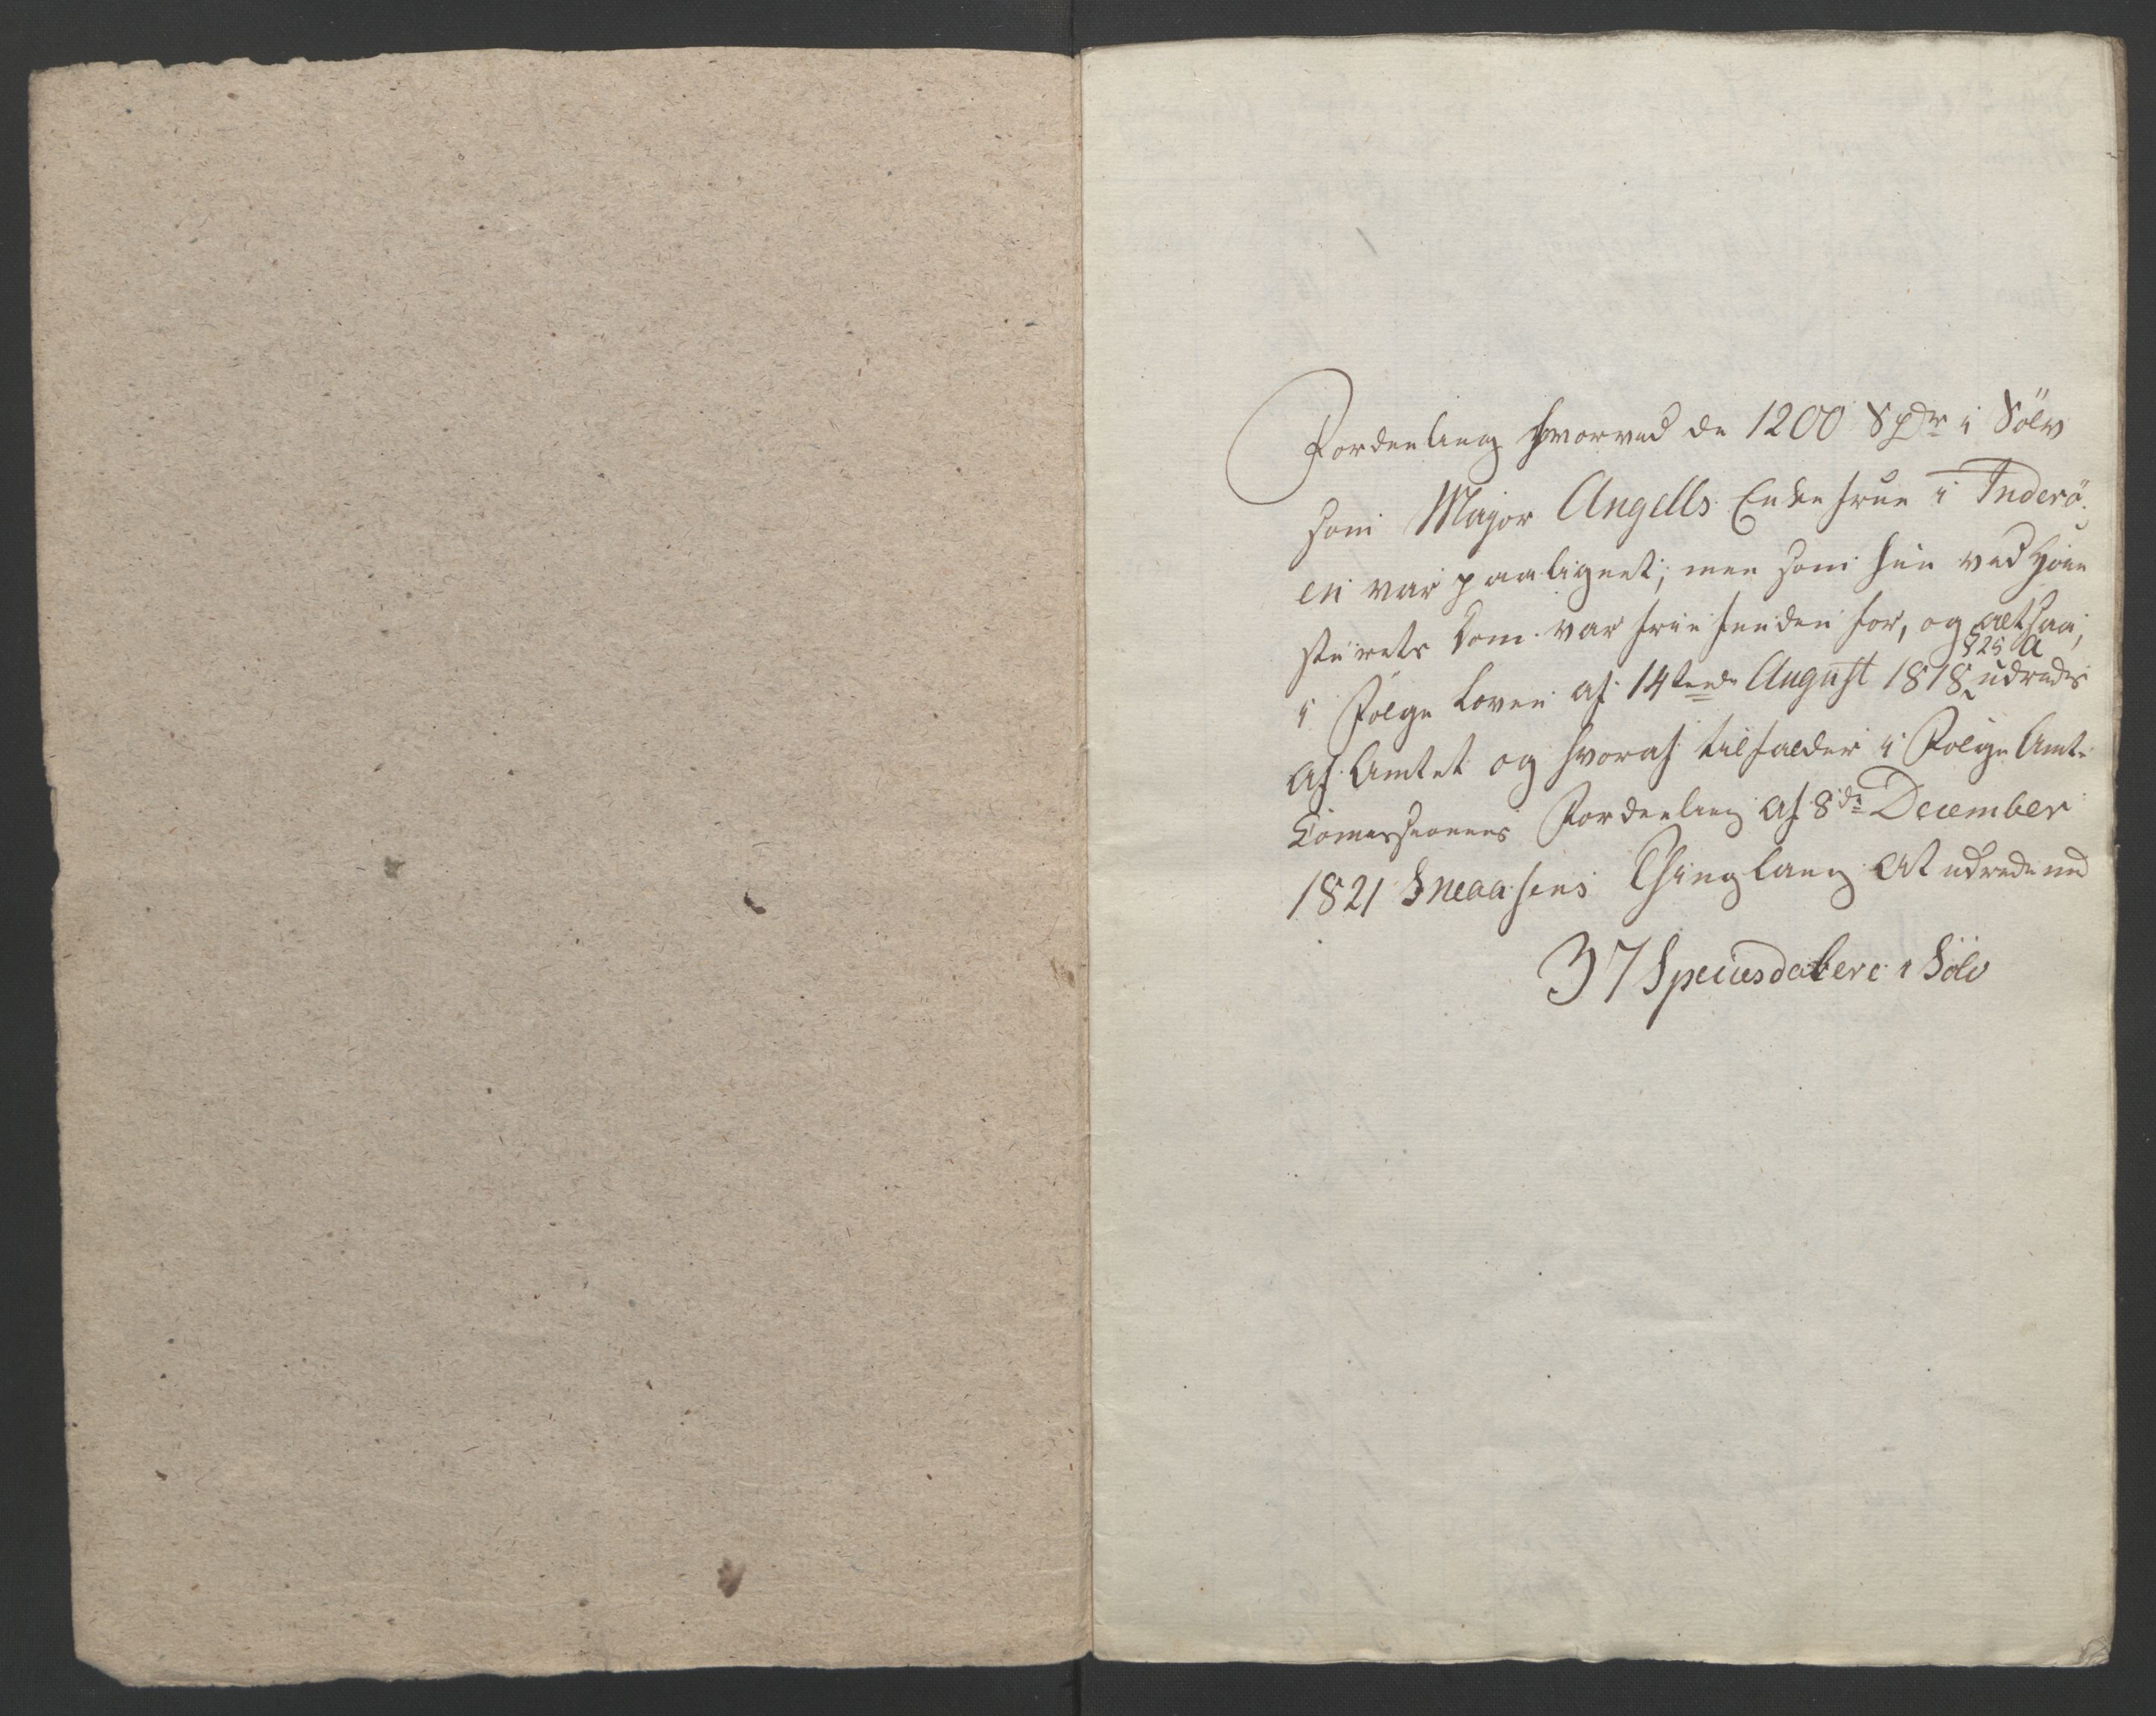 Fordeeling hvorved de 1200 Spdr i Sölv
som Major Angells Enkefrue i Inderö-
en var paalignet; men som hun ved Höie
ste rets Dom var frie funden for, og altsaa,
§ 25 a
i Fölge Loven af 14tende August 1818 udredes
af Amtet og hvoraf tilfalder i Fölge Amts
Comissionens Fordeeling af 8de December
1821 Sneaasens Thinglaug at udrede med
37 Speciesdalere i Sölv